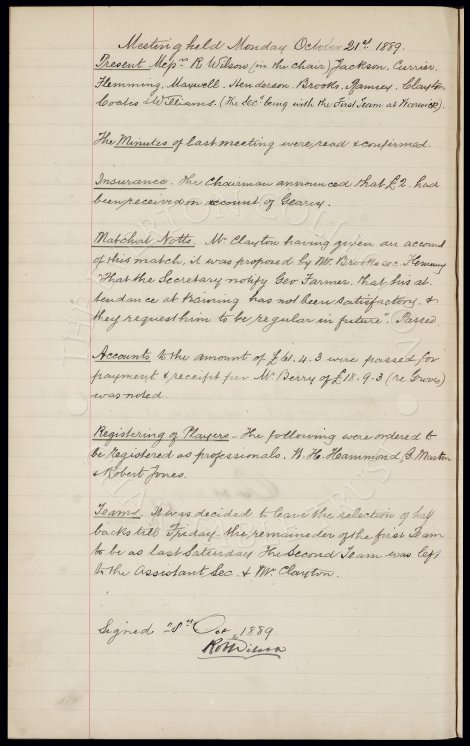 Meeting held Monday October 21st 1889.
Present Messrs R Wilson (in the chair) Jackson, Currier,
Flemming, Maxwell, Henderson, Brooks, Ramsey, Clayton
Coates & Williams. (The Secy being with the First Team at Warwick).
The Minutes of last meeting were read & confirmed.
Insurance. The Chairman announced that £2. had
been received on account of Geary.
Match at Notts. Mr Clayton having given an account
of this match, it was proposed by Mr. Brooks sec Flemmy
"That the Secretary notify Geo Farmer that his at-
tendance at training has not been satisfactory, &
they request him to be regular in future". Passed.
Accounts to the amount of £61.4.3 were passed for
payment & receipt per Mr Berry of £18.9.3 (re
was noted
Registering of Players - The following were ordered to
be registered as professionals. W. H. Hammond, G. Martin
& Robert Jones.
Teams. It was decided to leave the selection of half
backs till Friday the remaineder of the first Team
to be as last Saturday The Second Team was left
to the Assistant Sec. & Mr. Clayton.
Signed 28th Oct. 1889
Robt Wilson